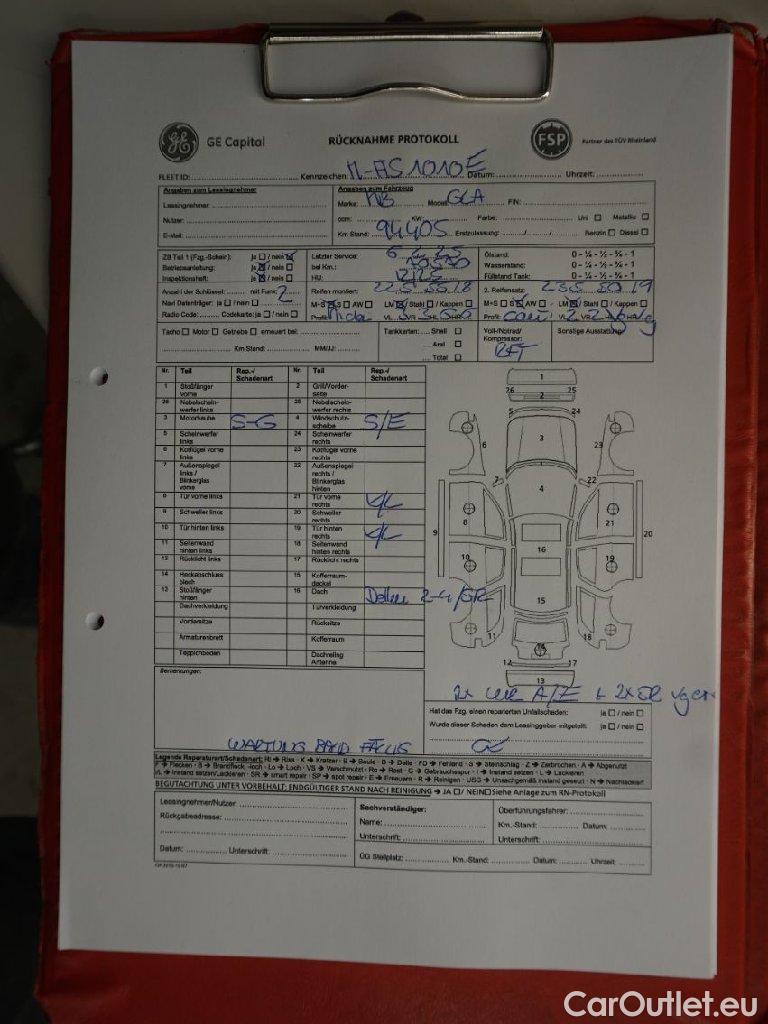 GE Capital RÜCKNAHME PROTOKOLL FSP Partner des TÜV Rheinland
FLEET ID: Kennzeichen: M-AS1010E Datum: Uhrzeit:
Angaben zum Leasingnehmer
Leasingnehmer:
Nutzer:
E-Mail:
Angaben zum Fahrzeug
Marke: MB Modell: GLA FIN:
ccm: KW: Farbe: Uni Metallic
Km Stand: 94405 Erstzulassung: Benzin Diesel
ZB Teil 1 (Fzg.-Schein): Ja / nein
Betriebsanleitung: Ja / nein
Inspektionsheft: Ja / nein
Anzahl der Schlüssel: mit Funk: 2
Navi Datenträger: ja / nein
Radio Code: Codekarte: ja / nein
Letzter Service:
bei Km.:
HU:
Reifen montiert:
M+S S AW LM / Stahl / Kappen
Profil:
Ölstand: 0 - ¼ - ½ - ¾ - 1
Wasserstand: 0 - ¼ - ½ - ¾ - 1
Füllstand Tank: 0 - ¼ - ½ - ¾ - 1
2. Reifensatz: 235 50 19
M+S S AW LM / Stahl / Kappen
Profil:
Tacho Motor Getriebe erneuert bei:
Km Stand: MM/JJ:
Tankkarten: Shell
Aral
Total
Voll-/Notrad/
Kompressor:
RFT
Sonstige Ausstattung:
Nr. Teil Rep.-/ Schadenart Nr. Teil Rep.-/ Schadenart
1 Stoßfänger vorne 2 Grill/Vorderseite
26 Nebelscheinwerfer links 25 Nebelscheinwerfer rechts
3 Motorhaube S-G 4 Windschutzscheibe S/E
5 Scheinwerfer links 24 Scheinwerfer rechts
6 Kotflügel vorne links 23 Kotflügel vorne rechts
7 Außenspiegel links / Blinkerglas vorne 22 Außenspiegel rechts / Blinkerglas hinten
8 Tür vorne links 21 Tür vorne rechts
9 Schweller links 20 Schweller rechts
10 Tür hinten links 19 Tür hinten rechts
11 Seitenwand hinten links 18 Seitenwand hinten rechts
12 Rücklicht links 17 Rücklicht rechts
14 Heckabschlussblech 15 Kofferraumdeckel
13 Stoßfänger hinten 16 Dach
Dachverkleidung Türverkleidung
Vordersitze Rücksitze
Armaturenbrett Kofferraum
Teppichboden Dachreling Antenne
1
26 25
2
5 24
3
6
23
7
22
4
8
21
9
20
10
16
19
15
11
18
14
12 17
13
Bemerkungen:
WARTUNG BALD FÄLLIG
Hat das Fzg. einen reparierten Unfallschaden: ja / nein
Wurde dieser Schaden dem Leasinggeber mitgeteilt: ja / nein
Legende Reparaturart/Schadenart: Ri → Riss · K → Kratzer · B → Beule · D → Delle · FD → Fehlend · S → Steinschlag · Z → Zerbrochen · A → Abgenutzt
F → Flecken · B → Brandfleck -loch · Lo → Loch · VS → Verschmutzt · Ro → Rost · G → Gebrauchsspur · I → Instand setzen · L → Lackieren
I/L → Instand setzen/Lackieren · SR → smart repair · SP → spot repair · E → Erneuern · R → Reinigen · UIGS → Unsachgemäß instand gesetzt · N → Nachlackiert
BEGUTACHTUNG UNTER VORBEHALT; ENDGÜLTIGER STAND NACH REINIGUNG → JA / NEIN Siehe Anlage zum RN-Protokoll
Leasingnehmer/Nutzer
Rückgabeadresse:
Datum: Unterschrift:
Sachverständiger:
Name:
Unterschrift:
Überführungsfahrer:
Km.-Stand: Datum:
Unterschrift:
ÜG Stellplatz: Km.-Stand: Datum: Uhrzeit:
CarOutlet.eu